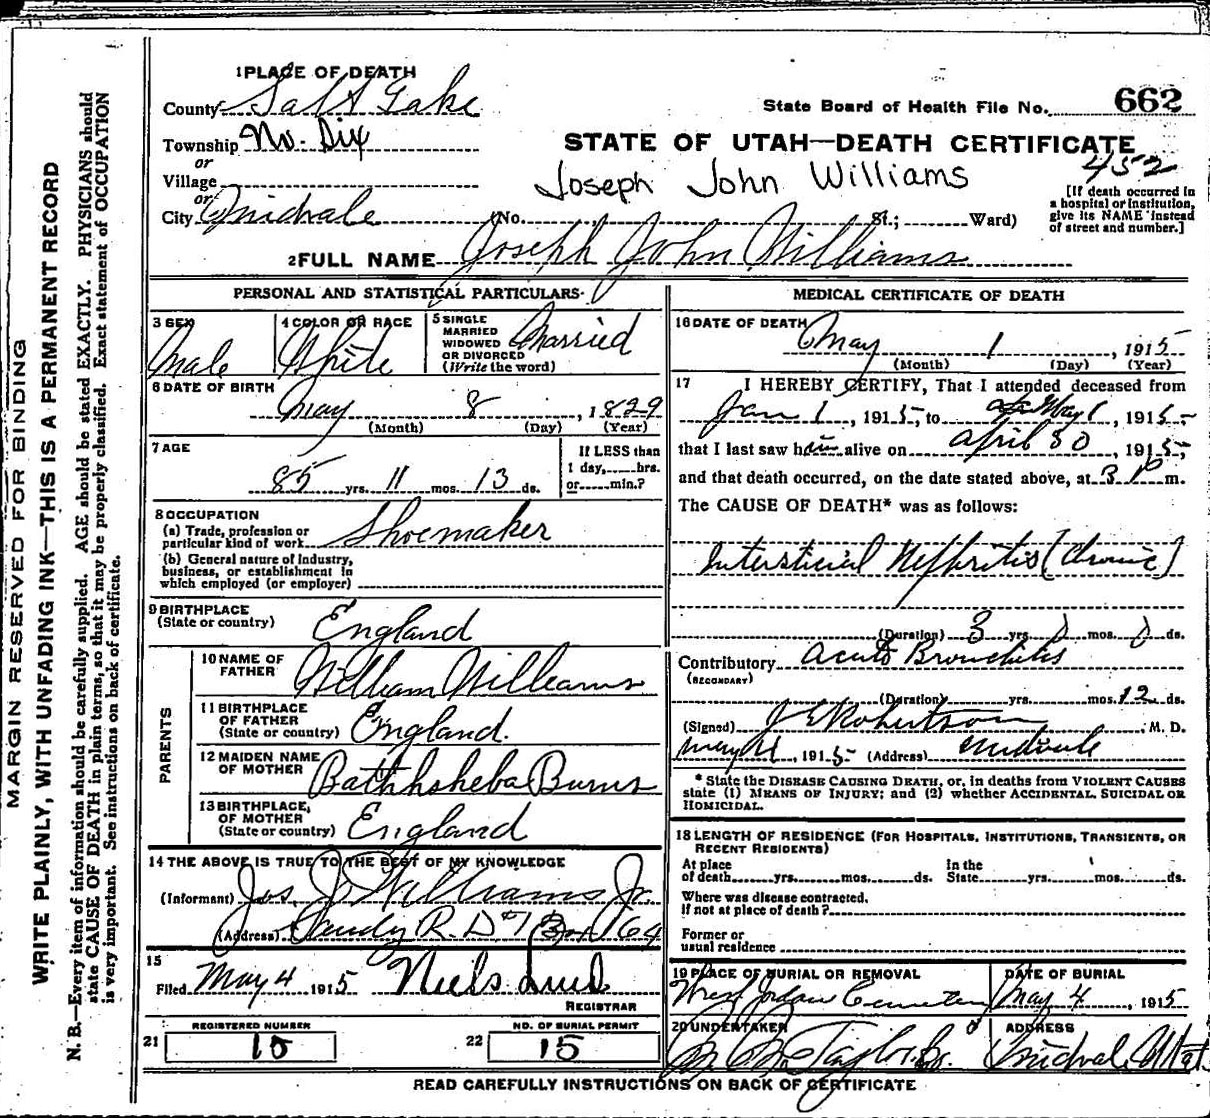 MARGIN RESERVED FOR BINDING
WRITE PLAINLY, WITH UNFADING INK—THIS IS A PERMANENT RECORD
N. B.—Every item of information should be carefully supplied. AGE should be stated EXACTLY. PHYSICIANS should
state CAUSE OF DEATH in plain terms, so that it may be properly classified. Exact statement of OCCUPATION
is very important. See instructions on back of certificate.
1 PLACE OF DEATH
County Salt Lake
State Board of Health File No. 662
Township No. Six
STATE OF UTAH—DEATH CERTIFICATE
452
or
Village
Joseph John Williams
[If death occurred in
a hospital or institution,
give its NAME instead
of street and number.]
or
City Midvale (No. St.; Ward)
2 FULL NAME Joseph John Williams
PERSONAL AND STATISTICAL PARTICULARS
3 SEX
Male
4 COLOR OR RACE
White
5 SINGLE
MARRIED
WIDOWED
OR DIVORCED
(Write the word)
Married
6 DATE OF BIRTH
May 8, 1829
(Month) (Day) (Year)
7 AGE
85 yrs. 11 mos. 13 ds.
If LESS than
1 day, hrs.
or min.?
8 OCCUPATION
(a) Trade, profession or
particular kind of work Shoemaker
(b) General nature of industry,
business, or establishment in
which employed (or employer)
9 BIRTHPLACE
(State or country) England
PARENTS
10 NAME OF
FATHER William Williams
11 BIRTHPLACE
OF FATHER
(State or country) England.
12 MAIDEN NAME
OF MOTHER Bathhsheba Burns
13 BIRTHPLACE,
OF MOTHER
(State or country) England
14 THE ABOVE IS TRUE TO THE BEST OF MY KNOWLEDGE
(Informant) Jos. J. Williams Jr.
(Address) Sandy R. D #1 Box 164
15
Filed May 4 1915 Niels Lind
REGISTRAR
21 REGISTERED NUMBER
15
22 NO. OF BURIAL PERMIT
15
MEDICAL CERTIFICATE OF DEATH
16 DATE OF DEATH
May 1, 1915
(Month) (Day) (Year)
17 I HEREBY CERTIFY, That I attended deceased from
Jan 1, 1915, to May 1, 1915,
that I last saw him alive on April 30, 1915,
and that death occurred, on the date stated above, at 3 P m.
The CAUSE OF DEATH* was as follows:
Intersticial Nephritis (Chronic)
(Duration) 3 yrs. 0 mos. 0 ds.
Contributory Acute Bronchitis
(SECONDARY)
(Duration) yrs. mos. 12 ds.
(Signed) J E Robertson, M. D.
May, 1915 (Address) Midvale
* State the DISEASE CAUSING DEATH, or, in deaths from VIOLENT CAUSES
state (1) MEANS OF INJURY; and (2) whether ACCIDENTAL, SUICIDAL OR
HOMICIDAL.
18 LENGTH OF RESIDENCE (FOR HOSPITALS, INSTITUTIONS, TRANSIENTS, OR
RECENT RESIDENTS)
At place In the
of death yrs. mos. ds. State yrs. mos. ds.
Where was disease contracted,
If not at place of death?
Former or
usual residence
19 PLACE OF BURIAL OR REMOVAL
West Jordan Cemetery
DATE OF BURIAL
May 4, 1915
20 UNDERTAKER
Taylor Co.
ADDRESS
Midvale Utah
READ CAREFULLY INSTRUCTIONS ON BACK OF CERTIFICATE